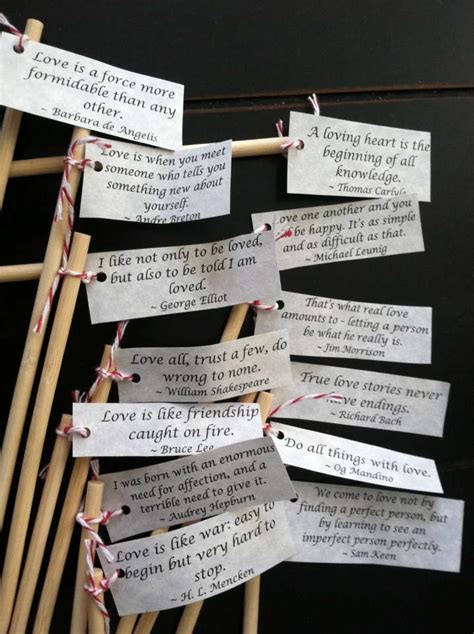 Love is a force more
formidable than any
other.
~ Barbara de Angelis
A loving heart is the
beginning of all
knowledge.
~ Thomas Carlyle
Love is when you meet
someone who tells you
something new about
yourself.
~ Andre Breton
Love one another and you
be happy. It's as simple
and as difficult as that.
~ Michael Leunig
I like not only to be loved,
but also to be told I am
loved.
~ George Elliot
That's what real love
amounts to - letting a person
be what he really is.
~ Jim Morrison
Love all, trust a few, do
wrong to none.
~ William Shakespeare
True love stories never
have endings.
~ Richard Bach
Love is like friendship
caught on fire.
~ Bruce Lee
Do all things with love.
~ Og Mandino
I was born with an enormous
need for affection, and a
terrible need to give it.
~ Audrey Hepburn
We come to love not by
finding a perfect person, but
by learning to see an
imperfect person perfectly.
~ Sam Keen
Love is like war: easy to
begin but very hard to
stop.
~ H. L. Mencken